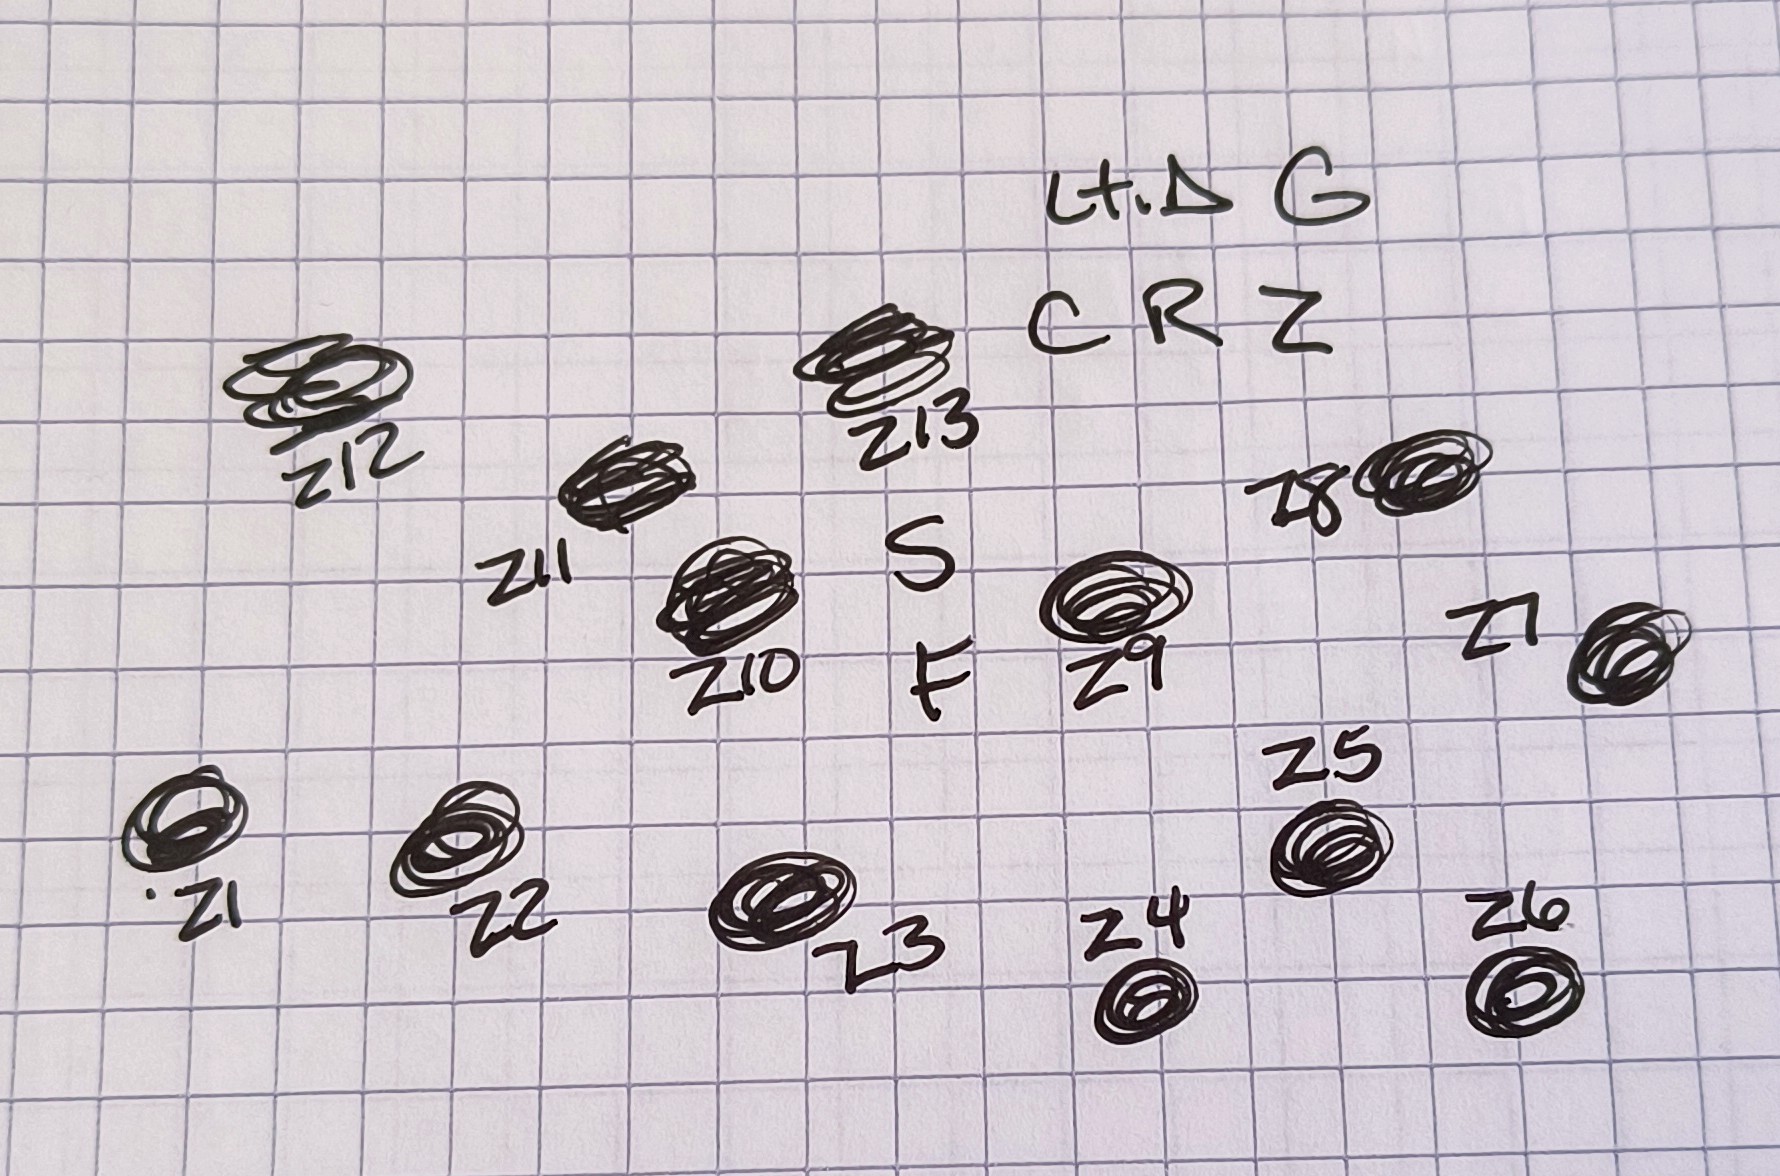 Lt.D G
C R Z
Z12
Z13
Z8
Z11
S
Z10
F
Z9
Z7
Z5
Z1
Z2
Z3
Z4
Z6